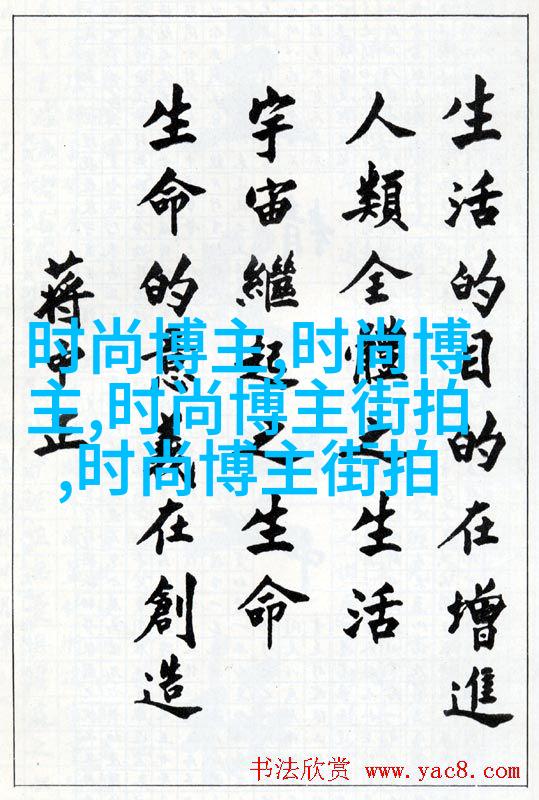 生活的目的在增進
人類全體之生活
宇宙繼起之生命
生命的意義在創造
蔣中正
时尚博主,时尚博
主,时尚博主街拍
,时尚博主街拍
书法欣赏 www.yac8.com